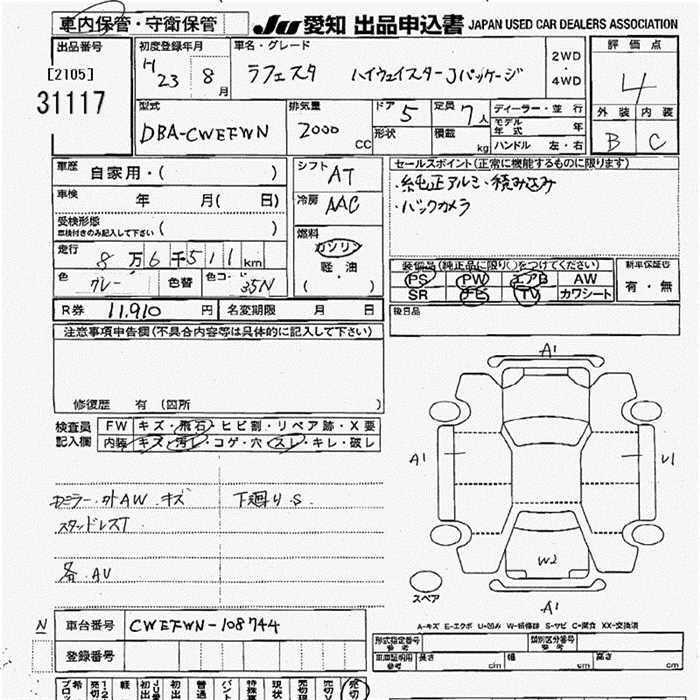 車内保管・守衛保管 JU 愛知 出品申込書 JAPAN USED CAR DEALERS ASSOCIATION
出品番号 初度登録年月 車名・グレード 2WD ・ 4WD 評価点
[2105] H23 8月 ラフェスタ ハイウェイスターJパッケージ 4
31117 外装 内装
型式 排気量 ドア 5 定員 7人 ディーラー・並行 B C
DBA-CWEFWN 2000 CC 形状 積載 kg モデル年式 年
ハンドル 左・右
車歴 自家用・( ) シフト AT セールスポイント(正常に機能するものに限ります)
車検 年 月( 日) 冷房 AAC ・純正アルミ・積み込み
受検形態 ・バックカメラ
車検付きのみ記入して下さい ( ) 燃料
走行 8万6千511km ガソリン
軽・油
・( )
装備品(純正品に限り○をつけてください) 新車保証書
色 グレー 色替 色コード 35N PS PW エアB AW 有・無
SR ナビ TV カワシート
R券 11,910円 名変期限 月 日 後日品
注意事項申告欄(不具合内容等は具体的に記入して下さい)
修復歴 有 (箇所 )
検査員記入欄 FW キズ・飛石・ヒビ割・リペア跡・X要
内装 キズ・汚レ・コゲ・穴・スレ・キレ・破レ
A1
A1 U1
ミラー・外AW キズ 下廻り S.
スタッドレスT
各.AU
W2
スペア
A1
A-キズ E-エクボ U-凹み W-補修跡 S-サビ C-腐食 XX-交換済
N 車台番号 CWEFWN-108744
登録番号
形式指定番号 参考 類別区分番号 参考
車庫証明用 参考 長さ cm 幅 cm 高さ cm